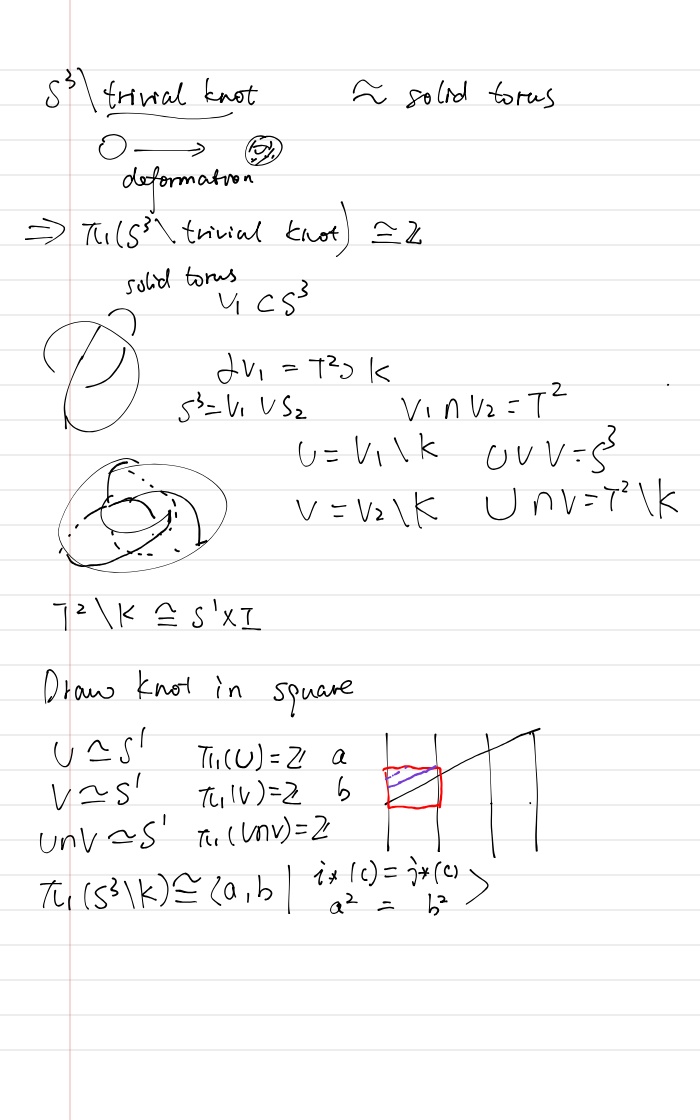 S³\trivial knot ≈ solid torus
deformation
⇒ π₁(S³\trivial knot) ≅ ℤ
solid torus
V₁ ⊂ S³
∂V₁ = T² ⊃ K
S³ = V₁ ∪ S₂ V₁ ∩ V₂ = T²
U = V₁\K U ∪ V = S³
V = V₂\K U ∩ V = T²\K
T²\K ≅ S¹×I
Draw knot in square
U ≃ S¹ π₁(U) = ℤ a
V ≃ S¹ π₁(V) = ℤ b
U∩V ≃ S¹ π₁(U∩V) = ℤ
π₁(S³\K) ≅ ⟨a, b | i*(c) = j*(c)⟩
a² = b²